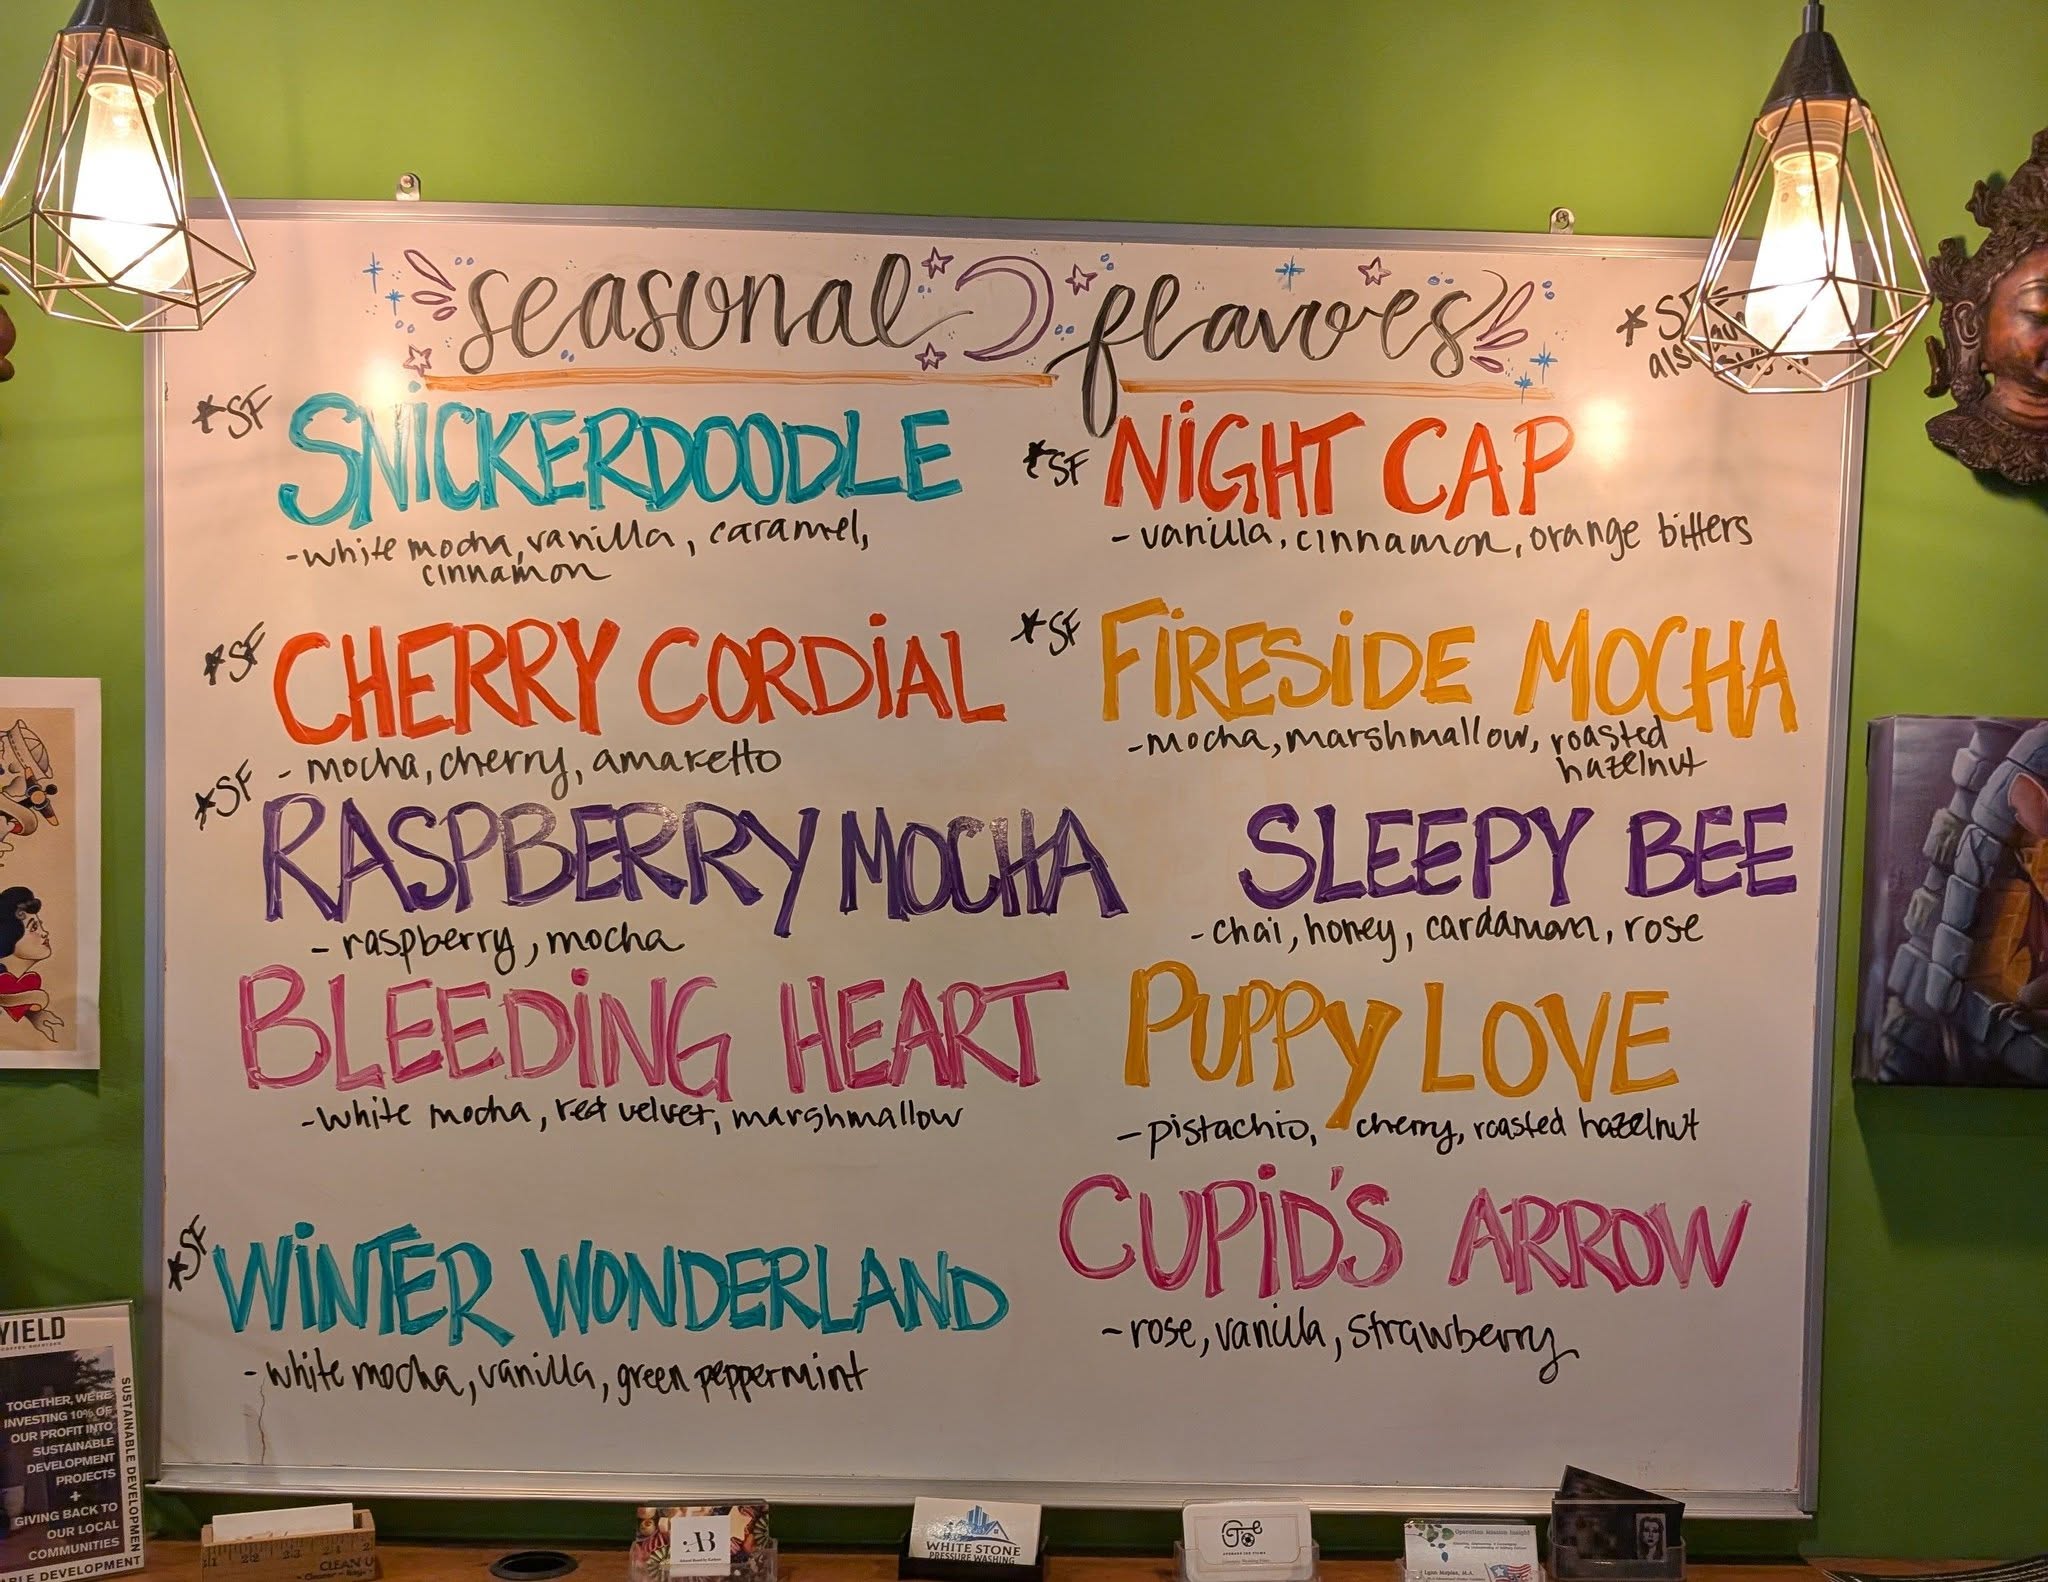 seasonal flavors
*SF
also
*SF
SNICKERDOODLE
- white mocha, vanilla, caramel,
cinnamon
*SF
CHERRY CORDIAL
- mocha, cherry, amaretto
*SF
RASPBERRY MOCHA
- raspberry, mocha
BLEEDING HEART
- white mocha, red velvet, marshmallow
*SF
WINTER WONDERLAND
- white mocha, vanilla, green peppermint
*SF
NIGHT CAP
- vanilla, cinnamon, orange bitters
*SF
FIRESIDE MOCHA
- mocha, marshmallow, roasted
hazelnut
SLEEPY BEE
- chai, honey, cardamom, rose
PUPPY LOVE
- pistachio, cherry, roasted hazelnut
CUPID'S ARROW
- rose, vanilla, strawberry
YIELD
TOGETHER, WE'RE
INVESTING 10% OF
OUR PROFIT INTO
SUSTAINABLE
DEVELOPMENT
PROJECTS
+
GIVING BACK TO
OUR LOCAL
COMMUNITIES
SUSTAINABLE DEVELOPMENT
ABLE DEVELOPMENT
CLEAN U
AB
WHITE STONE
PRESSURE WASHING
Operation Mission Insight